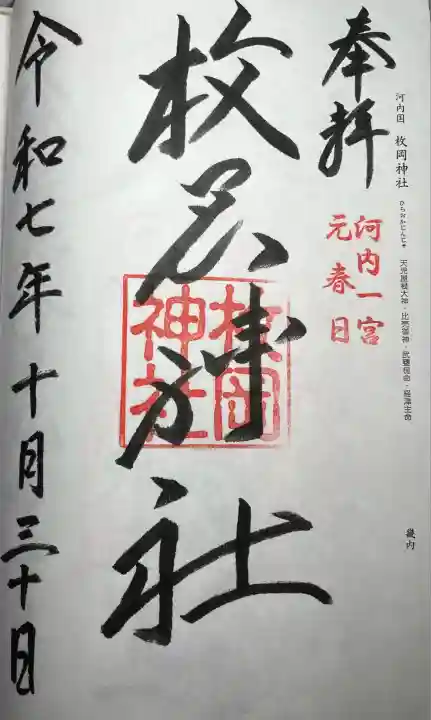 奉拝
河内国 枚岡神社 ひらおかじんじゃ 天児屋根大神・比売御神・武甕槌命・経津主命
畿内
河内一宮
元春日
枚岡神社
枚岡
神社
令和七年十月三十日